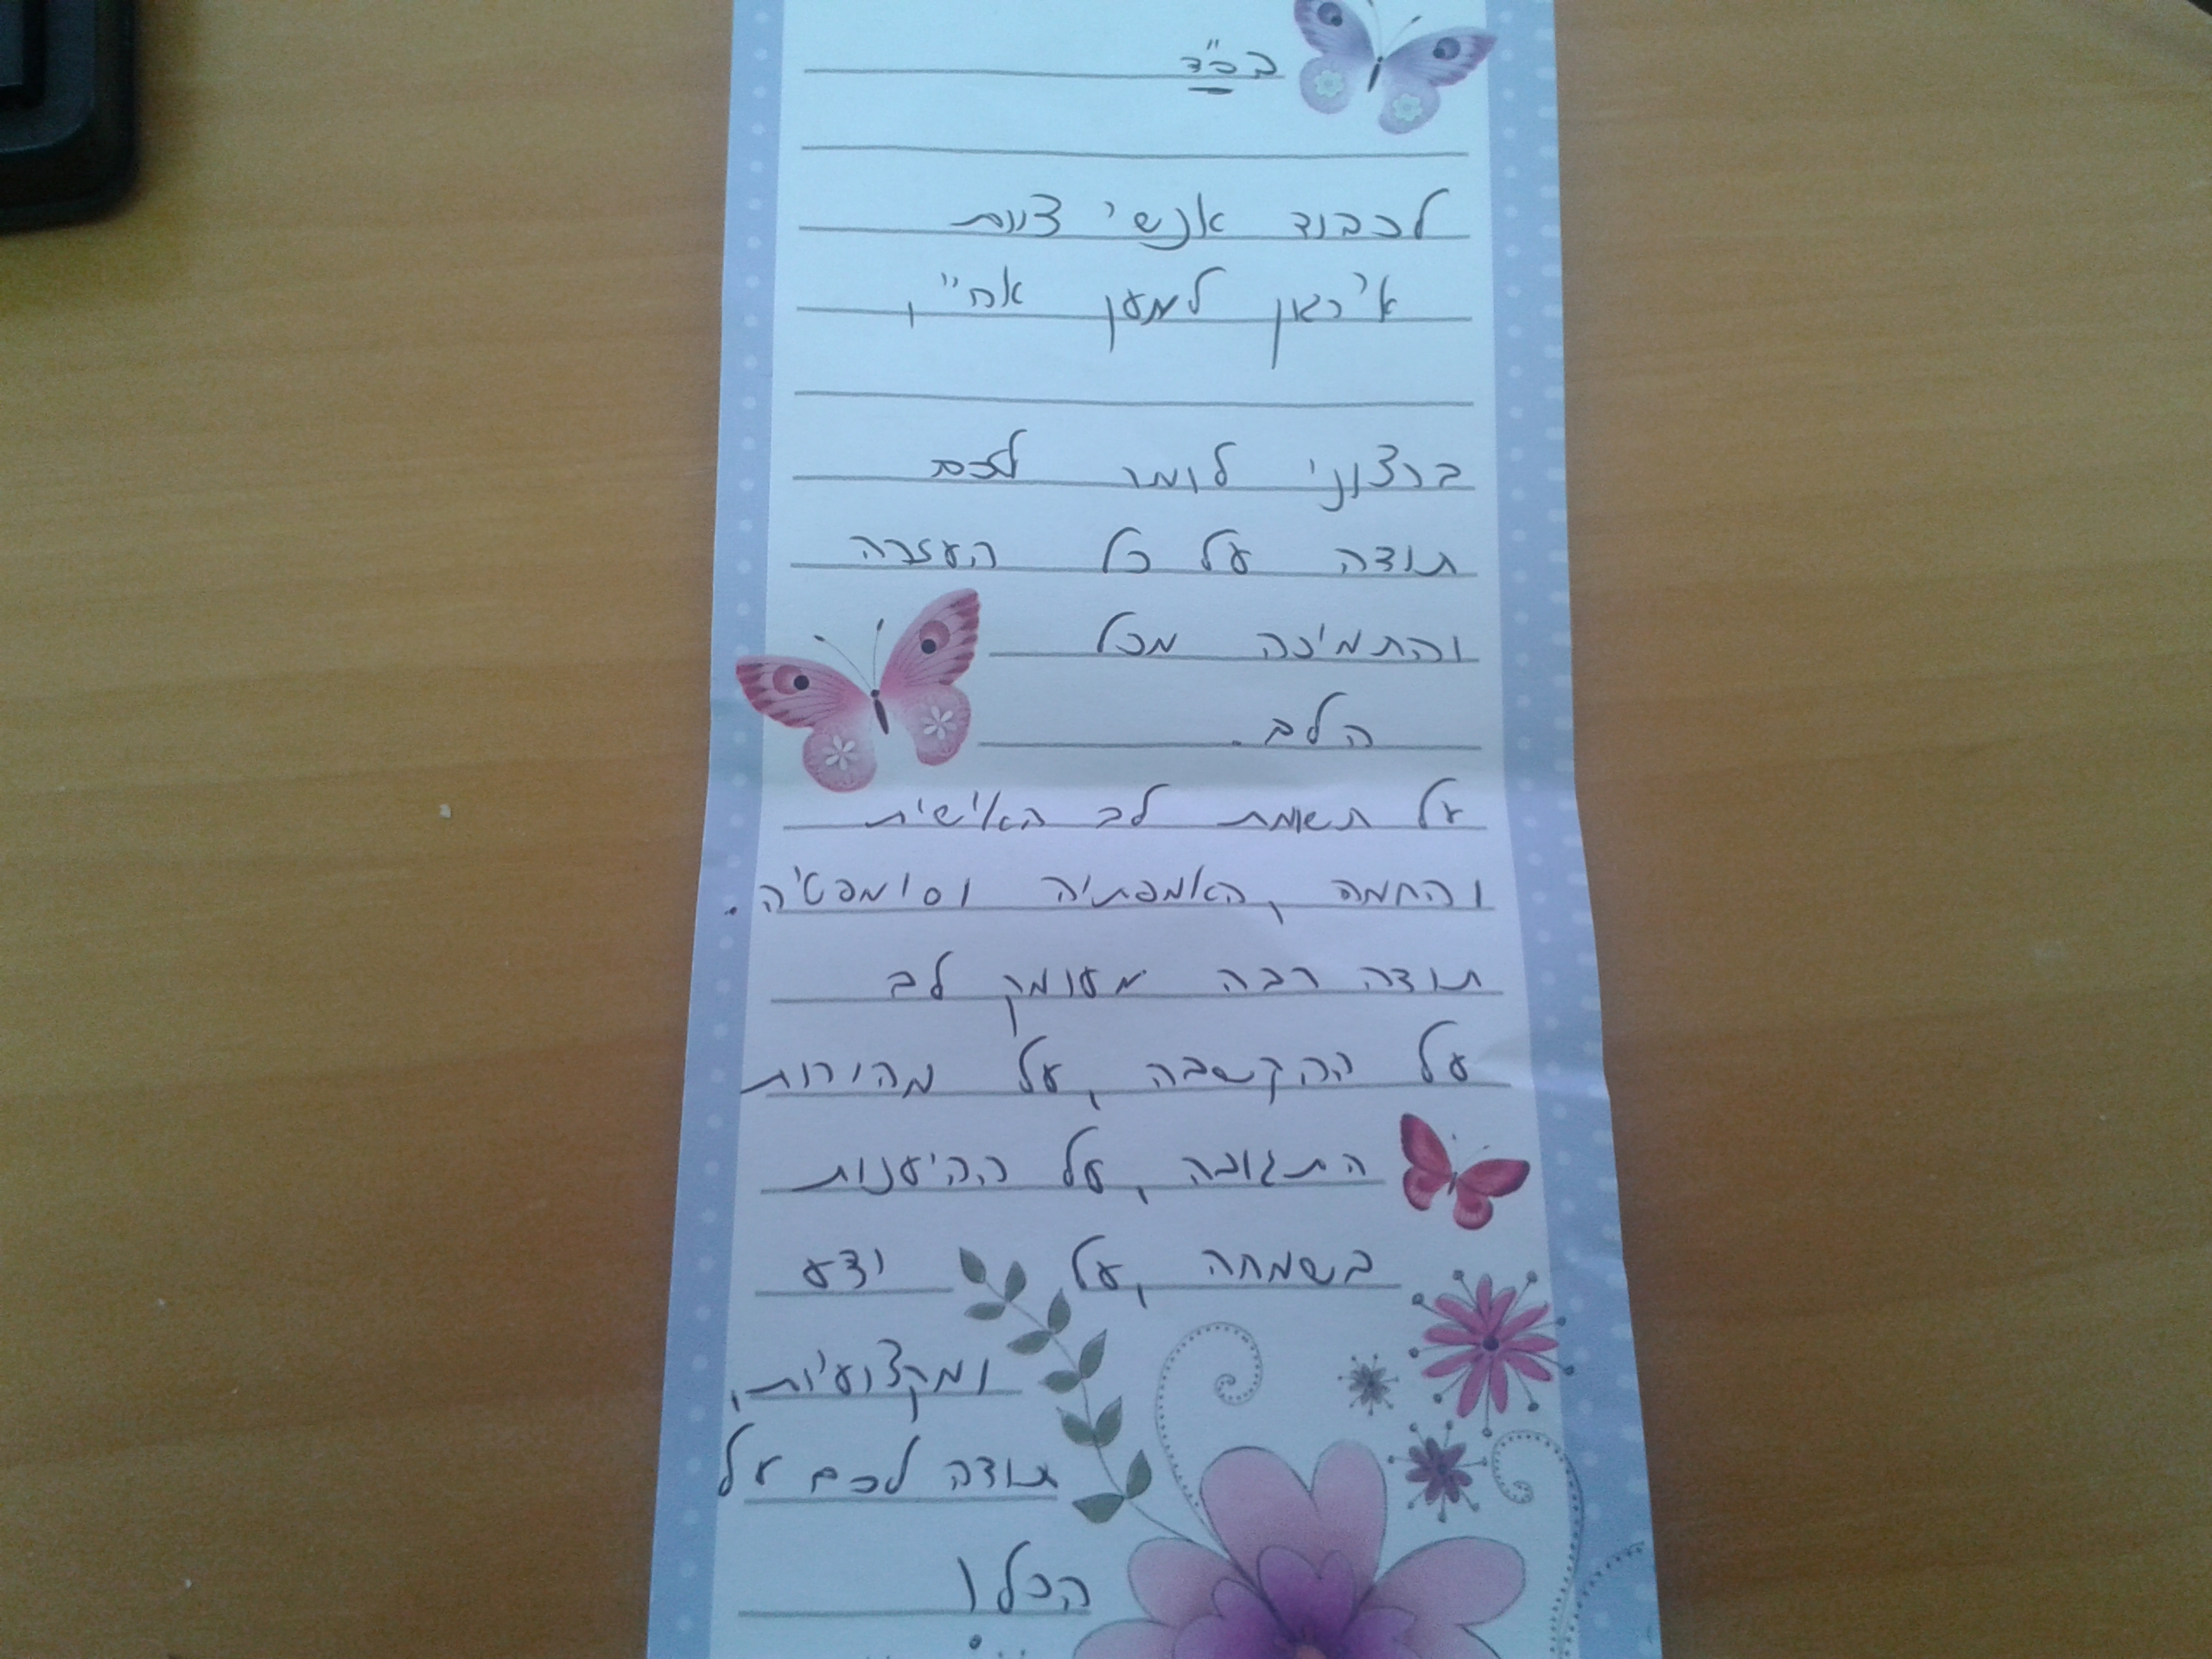 בס"ד
לכבוד אנשי צוות
איראן למען אח"י,
ברצוני לומר לכם
תודה על כל העזרה
והתמיכה מכל
הלב.
על תשומת לב האישית
והחמה, האמפתיה וסומפטיה.
תודה רבה מעומק לב
על ההקשבה, על מהירות
התגובה, על ההיענות
בשמחה, על ידע
ומקצועיות,
תודה לכם על
הכל!